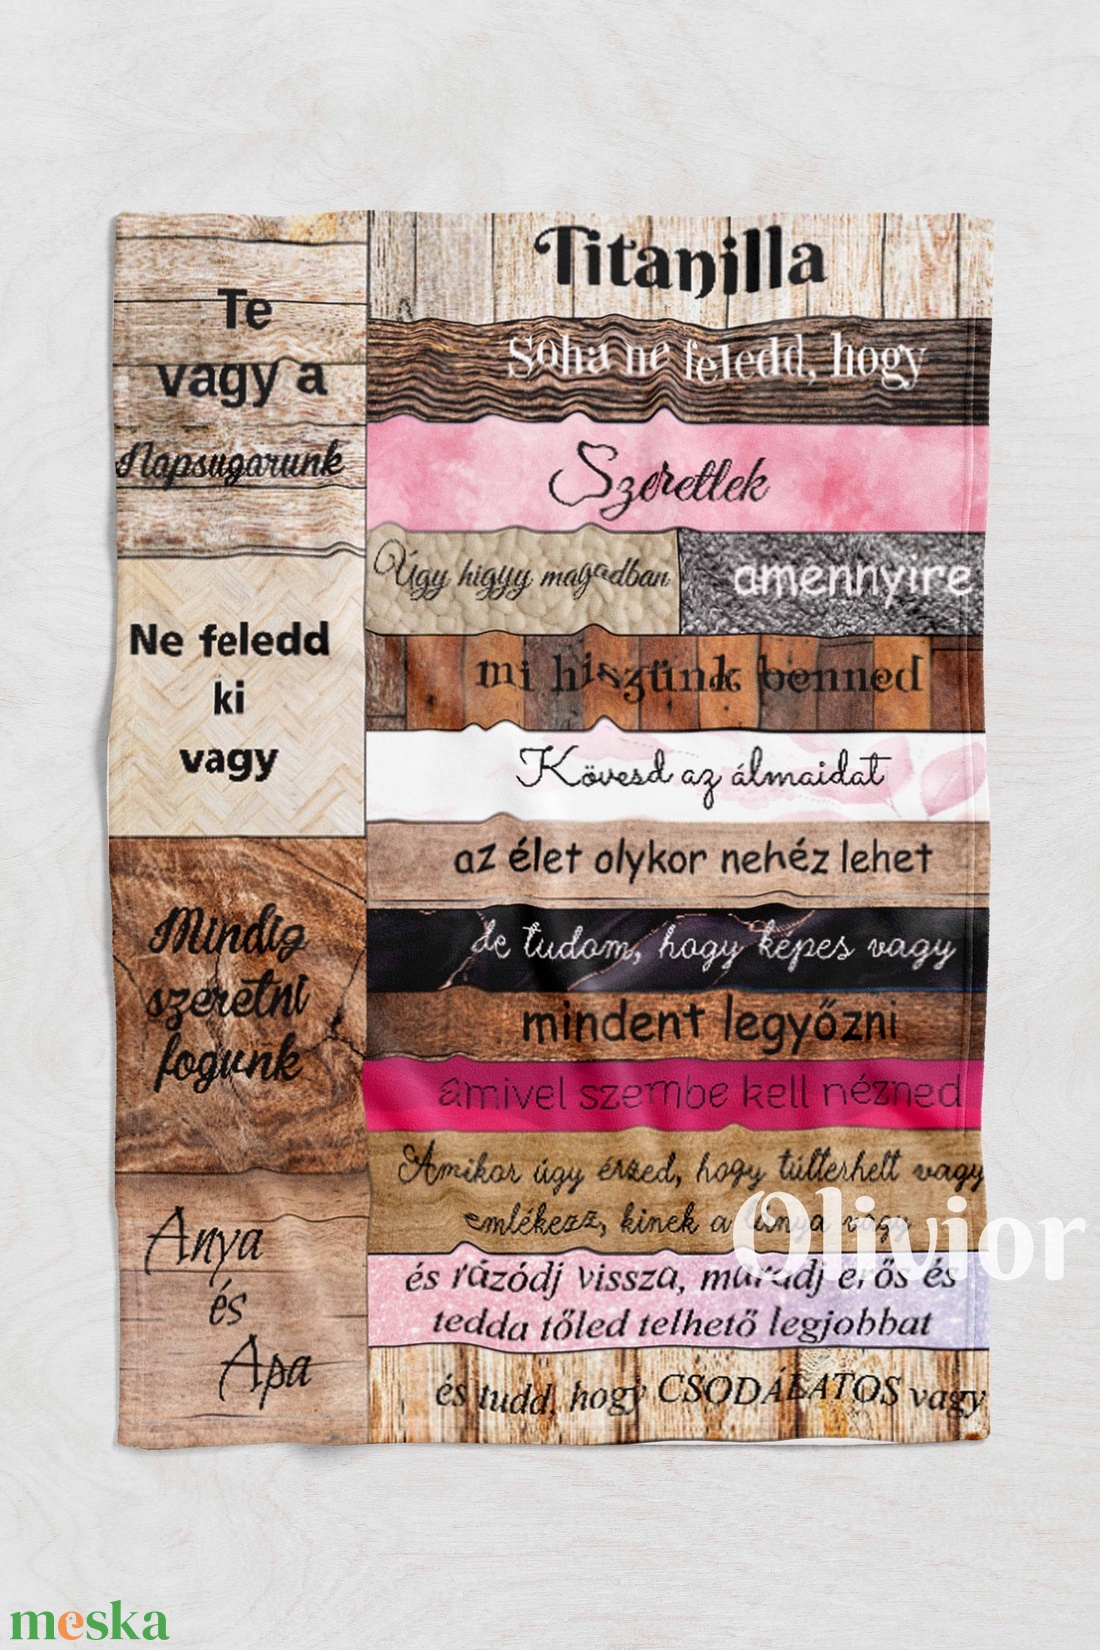 Te
vagy a
Napsugarunk
Ne feledd
ki
vagy
Mindig
szeretni
fogunk
Anya
és
Apa
Titanilla
Soha ne feledd, hogy
Szeretlek
Úgy higyy magadban
amennyire
mi hiszünk benned
Kövesd az álmaidat
az élet olykor nehéz lehet
de tudom, hogy képes vagy
mindent legyőzni
amivel szembe kell nézned
Amikor úgy érzed, hogy túlterhelt vagy
emlékezz, kinek a lánya vagy
és rázódj vissza, maradj erős és
tedda tőled telhető legjobbat
és tudd, hogy CSODÁLATOS vagy
Olivior
meska